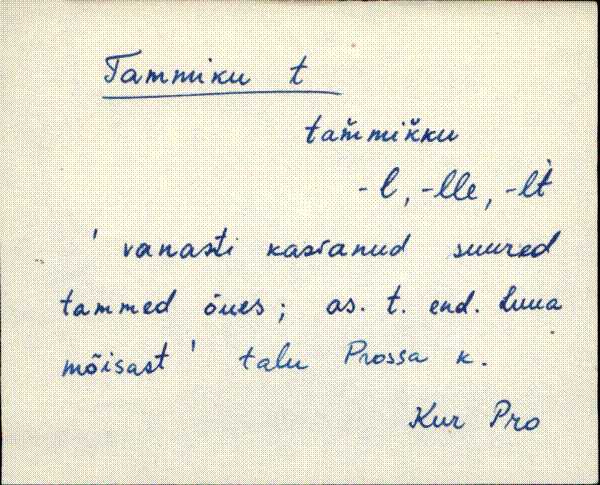 Tammiku t
tam̆mik̆ku
-l, -lle, -lt̀
' vanasti kasvanud suured
tammed õues; as. t. end. Luua
mõisast' talu Prossa k.
Kur Pro